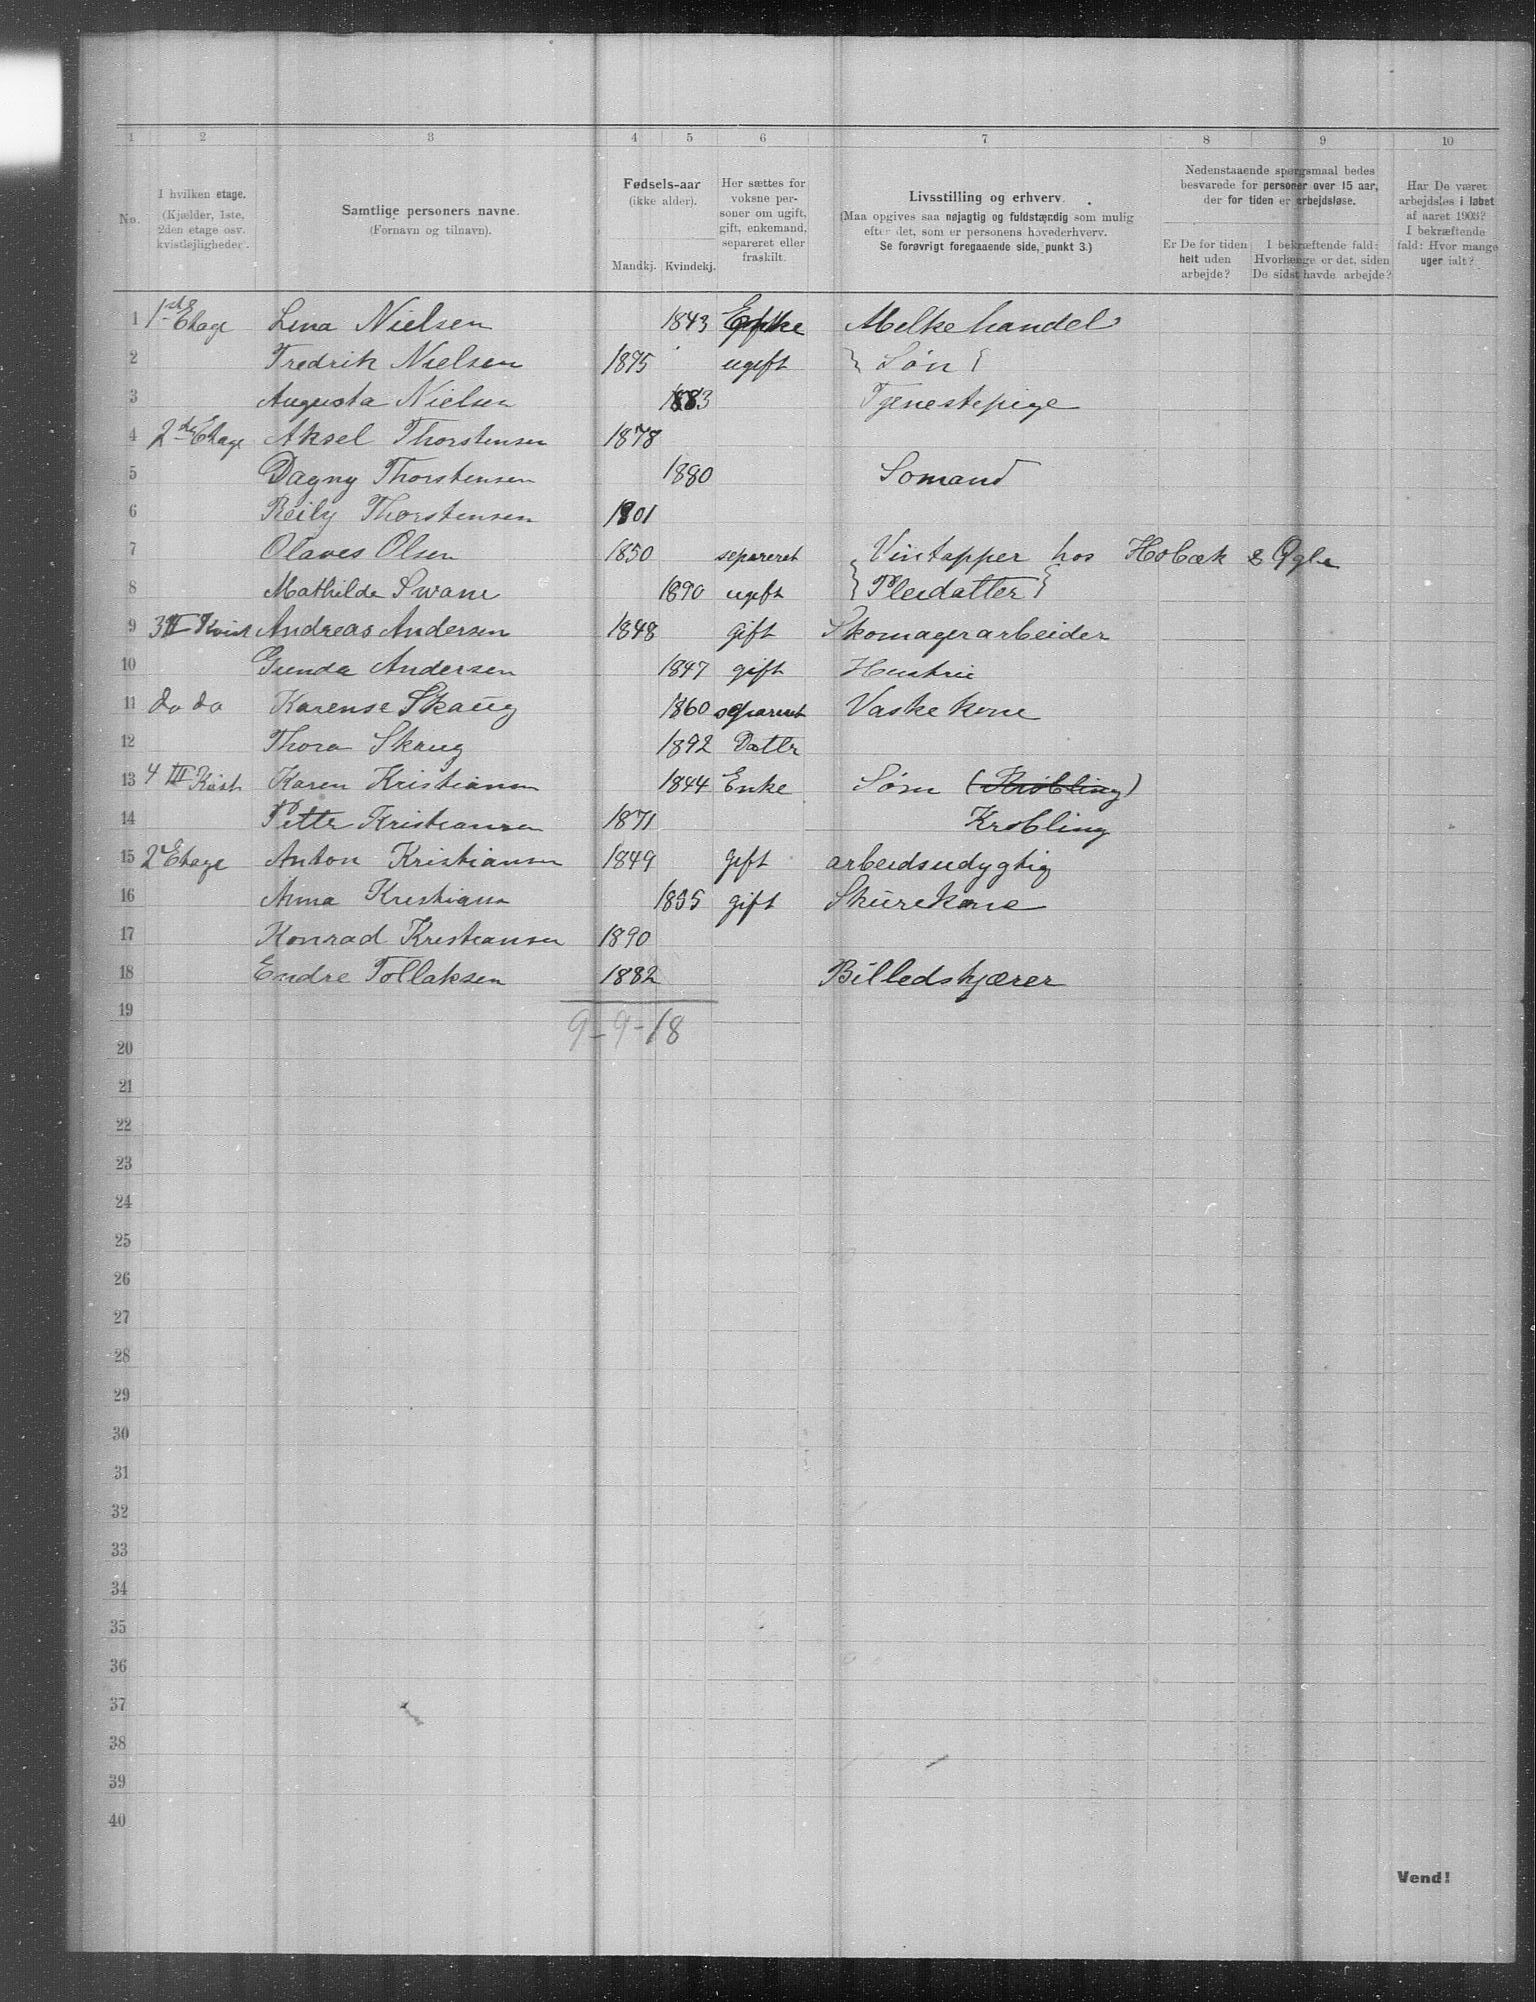 1 2 3 4 5 6 7 8 9 10
No.
I hvilken etage.
(Kjælder, 1ste,
2den etage osv.
kvistlejligheder).
Samtlige personers navne.
(Fornavn og tilnavn).
Fødsels-aar
(ikke alder).
Mandkj. Kvindekj.
Her sættes for
voksne per-
soner om ugift,
gift, enkemand,
separeret eller
fraskilt.
Livsstilling og erhverv.
(Maa opgives saa nøjagtig og fuldstændig som mulig
efter det, som er personens hovederhverv.
Se forøvrigt foregaaende side, punkt 3.)
Nedenstaaende spørgsmaal bedes
besvarede for personer over 15 aar,
der for tiden er arbejdsløse.
Er De for tiden
helt uden
arbejde?
I bekræftende fald:
Hvorlænge er det, siden
De sidst havde arbejde?
Har De været
arbejdsløs i løbet
af aaret 1903?
I bekræftende
fald: Hvor mange
uger ialt?
1 1ste Etage Lina Nielsen 1843 Enke Melkehandel
2 Fredrik Nielsen 1875 ugift } Søn {
3 Augusta Nielsen 1883 Tjenestepige
4 2de Etage Aksel Thorstensen 1878
5 Dagny Thorstensen 1880 Somand
6 Reily Thorstensen 1901
7 Olaves Olsen 1850 separeret Vintapper hos Holbæk &
8 Mathilde Swane 1890 ugift } Pleidatter }
9 3 II Kvist Andreas Andersen 1848 gift Skomagerarbeider
10 Gunda Andersen 1847 gift Hustrue
11 do do Karense Skaug 1860 separeret Vaskekone
12 Thora Skaug 1892 Datter
13 4 III Kvist Karen Kristiansen 1844 Enke Sønn (Krøbling)
14 Petter Kristiansen 1871 Krøbling
15 2 Etage Anton Kristiansen 1849 gift arbeidsudygtig
16 Anna Kristiansen 1855 gift Skurekone
17 Konrad Kristiansen 1890
18 Endre Tollaksen 1882 Billedskjærer
19 9-9-18
20
21
22
23
24
25
26
27
28
29
30
31
32
33
34
35
36
37
38
39
40
Vend!